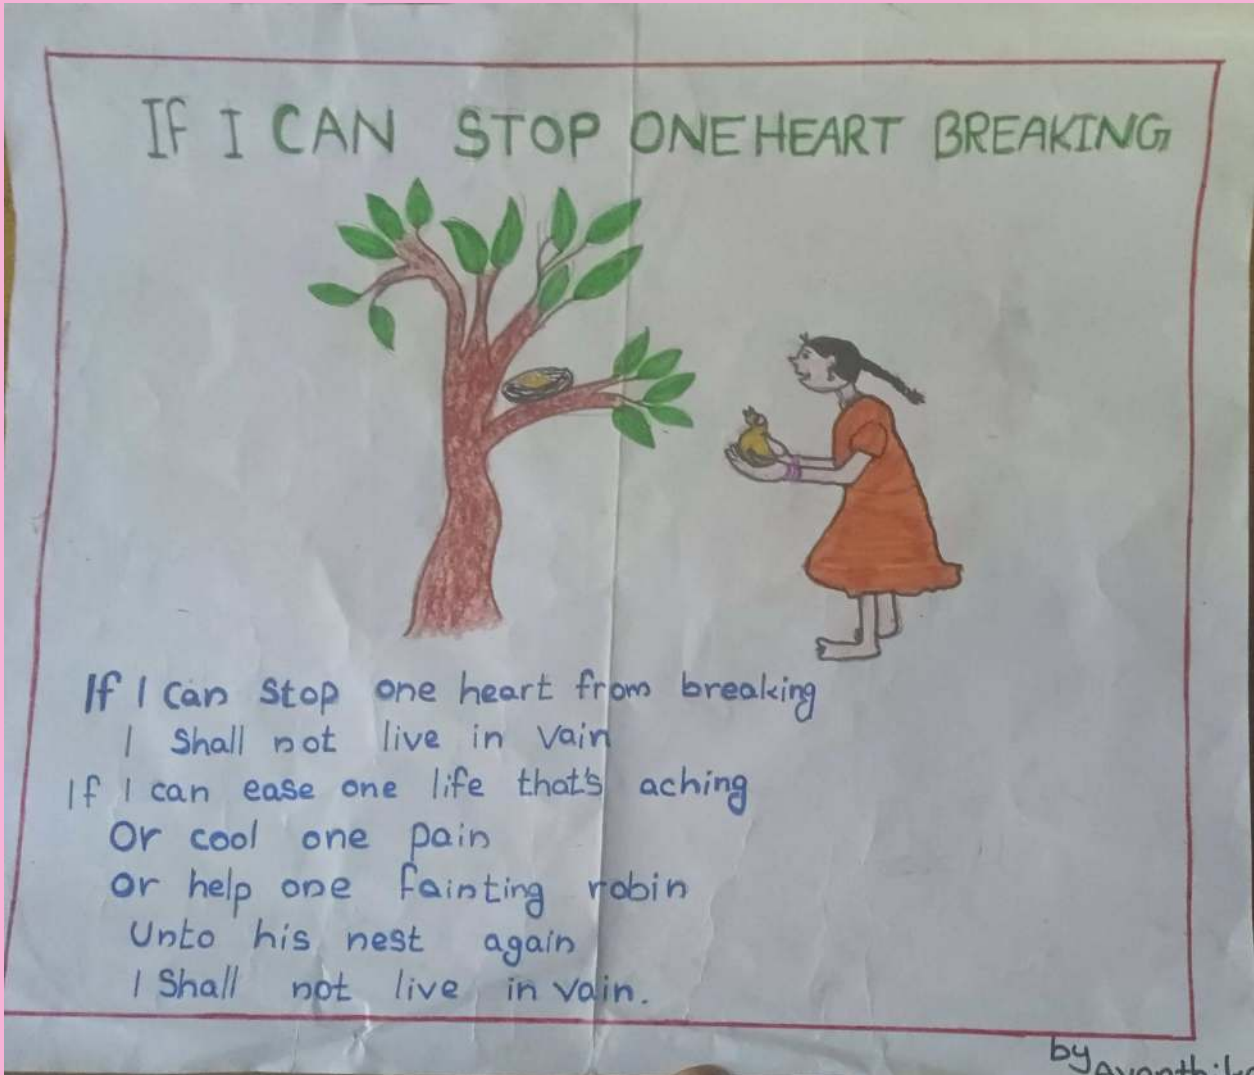 IF I CAN STOP ONE HEART BREAKING
If I can Stop one heart from breaking
I Shall not live in vain
If I can ease one life that's aching
Or cool one pain
Or help one fainting robin
Unto his nest again
I Shall not live in vain.
by